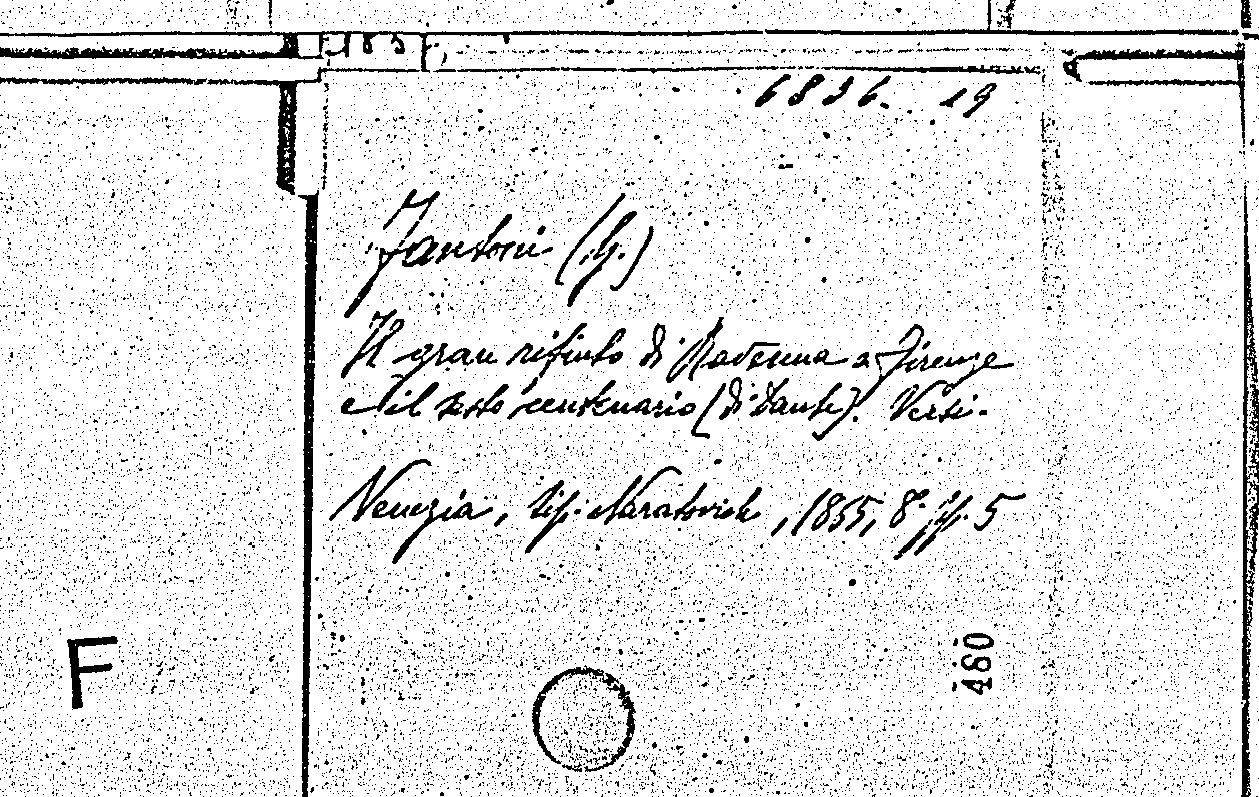 6836. 19
Fantoni (G.)
Il gran rifiuto di Ravenna a Firenze
e il sesto centenario (di Dante). Versi.
Venezia, tip. Naratovich, 1865, 8.° pp. 5
480
F